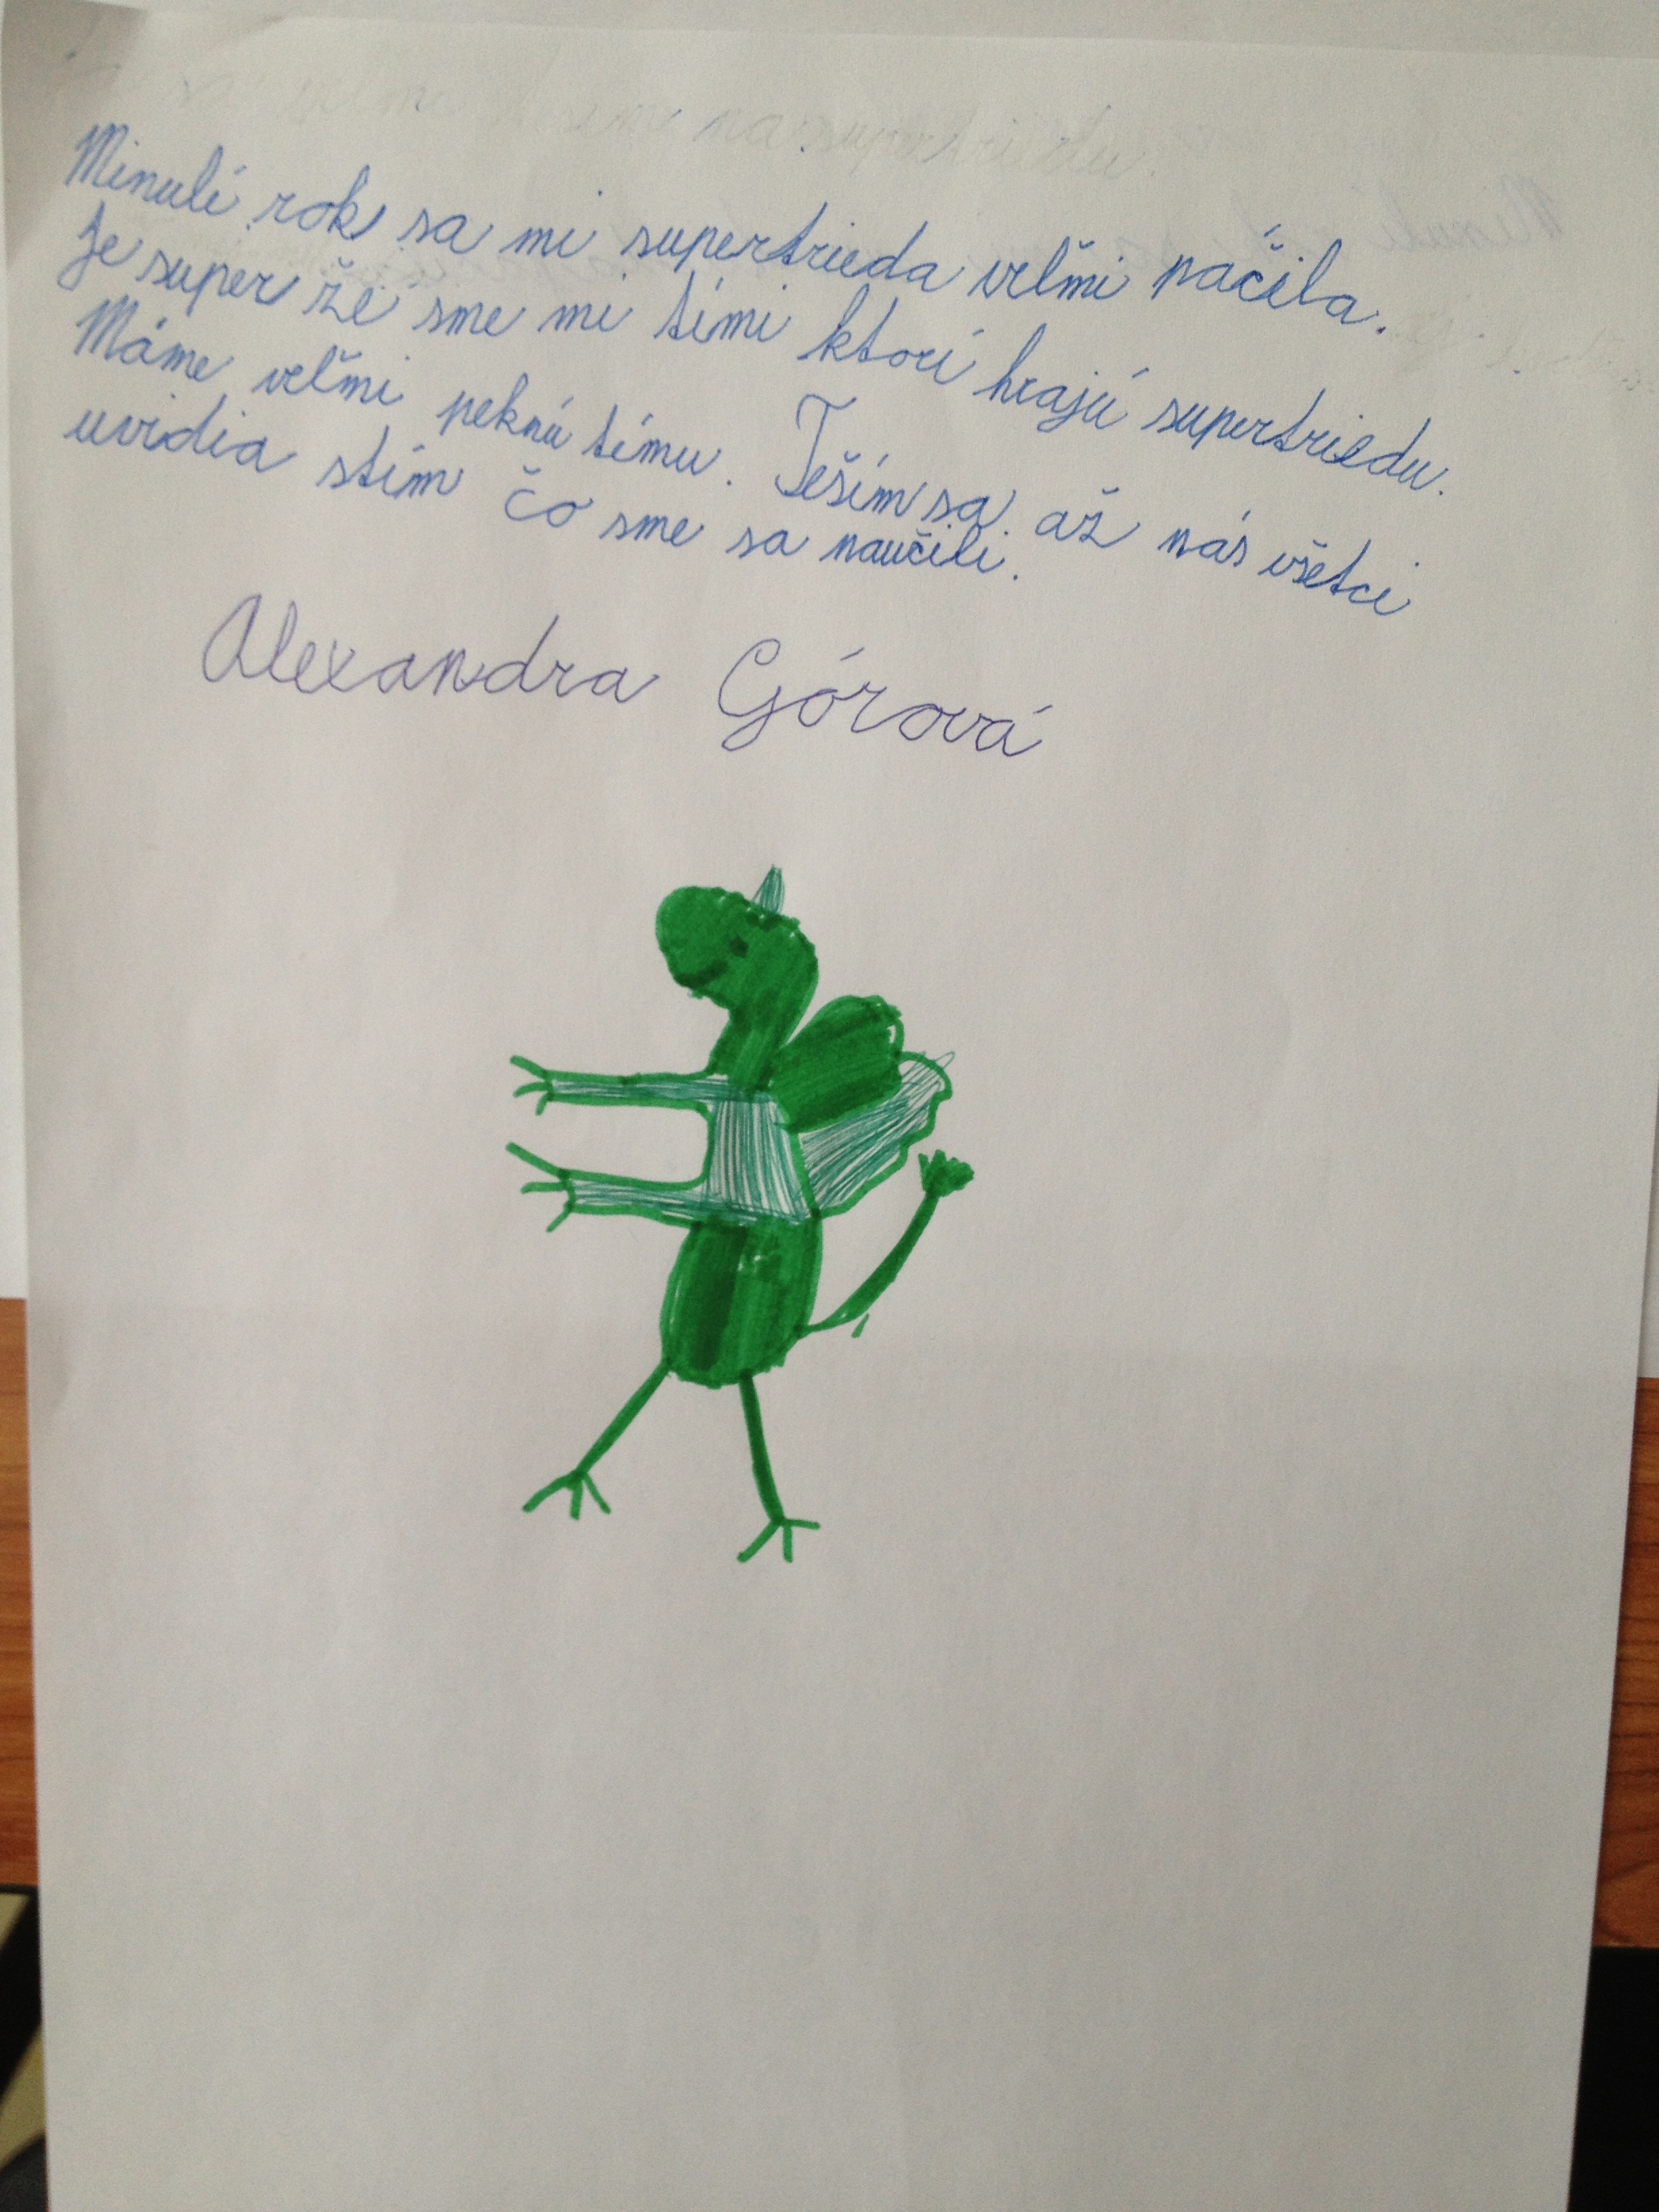 Minulí rok sa mi supertrieda veľmi páčila.
Je super že sme mi tími ktorí hrajú supertriedu.
Máme veľmi peknú tímu. Teším sa až nás všetci
uvidia stím čo sme sa naučili.
Alexandra Górová